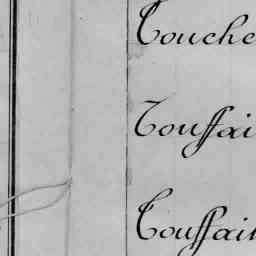 Touche
Toussai
Toussain